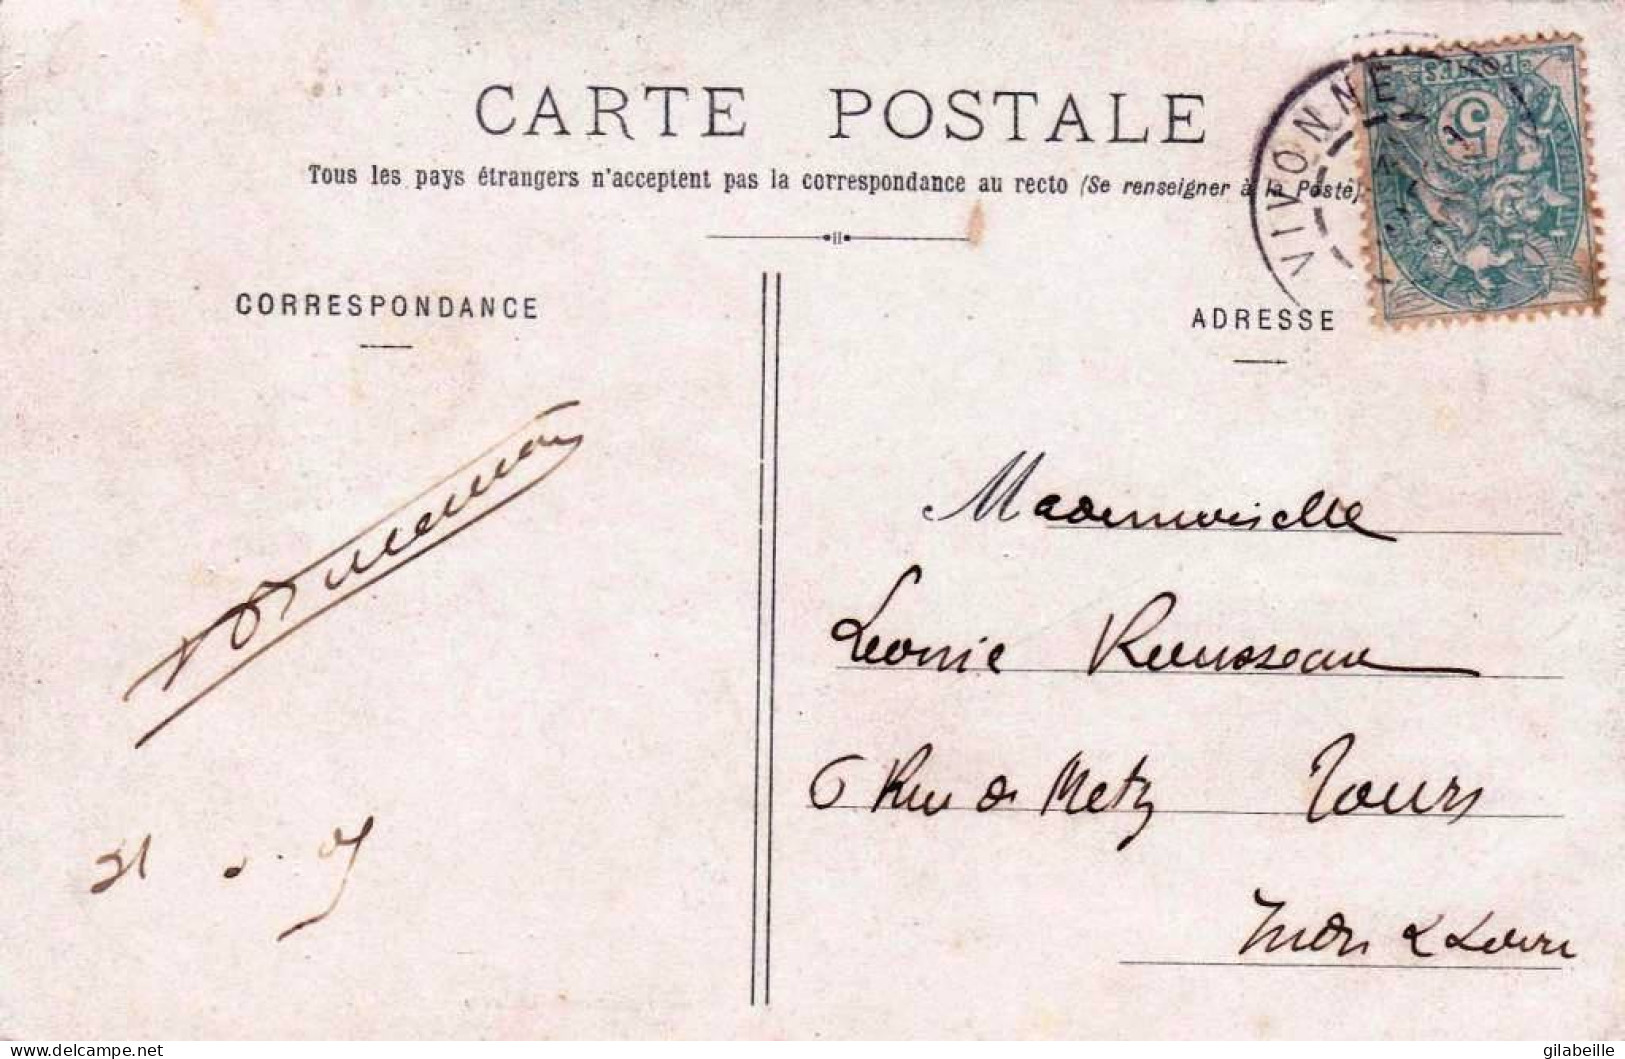 CARTE POSTALE
Tous les pays étrangers n'acceptent pas la correspondance au recto (Se renseigner à la Poste)
CORRESPONDANCE
ADRESSE
VIVONNE
POSTES
5
Mademoiselle
Leonie Rousseau
6 Rue de Metz Tours
Indre & Loire
delcampe.net
gilabeille